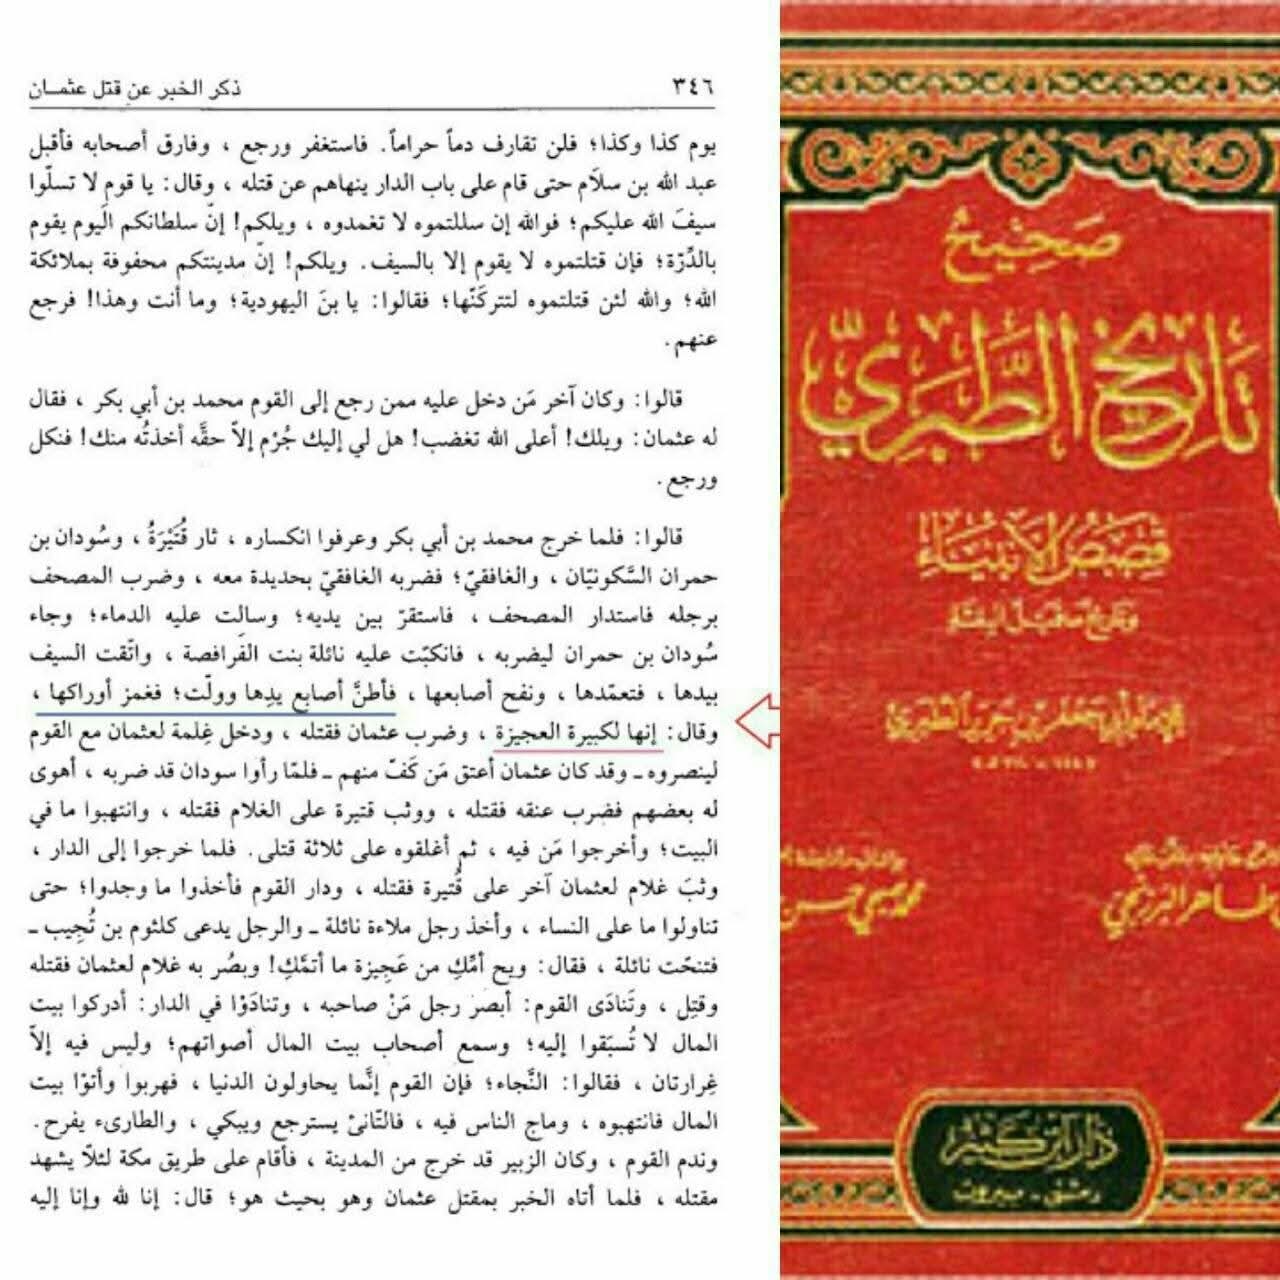 ٣٤٦
ذكر الخبر عن قتل عثمـان
يوم كذا وكذا؛ فلن تقارف دماً حراماً. فاستغفر ورجع ، وفارق أصحابه فأقبل
عبد الله بن سلاَم حتى قام على باب الدار ينهاهم عن قتله ، وقال: يا قوم لا تسلّوا
سيفَ الله عليكم؛ فوالله إن سللتموه لا تغمدوه ، ويلكم! إنّ سلطانكم اليوم يقوم
بالدِّرّة؛ فإن قتلتموه لا يقوم إلا بالسيف. ويلكم! إنّ مدينتكم محفوفة بملائكة
الله؛ والله لئن قتلتموه لتتركَنّها؛ فقالوا: يا بنَ اليهودية؛ وما أنت وهذا! فرجع
عنهم.
قالوا: وكان آخر مَن دخل عليه ممن رجع إلى القوم محمد بن أبي بكر ، فقال
له عثمان: ويلك! أعلى الله تغضب! هل لي إليك جُرْم إلاّ حقَّه أخذتُه منك! فنكل
ورجع.
قالوا: فلما خرج محمد بن أبي بكر وعرفوا انكساره ، ثار قُتَيْرَةُ ، وسُودان بن
حمران السَّكونيّان ، والغافقيّ؛ فضربه الغافقيّ بحديدة معه ، وضرب المصحف
برجله فاستدار المصحف ، فاستقرّ بين يديه؛ وسالت عليه الدماء؛ وجاء
سُودان بن حمران ليضربه ، فانكبّت عليه نائلة بنت الفَرافصة ، واتّقت السيف
بيدها ، فتعمّدها ، ونفح أصابعها ، فأطنَّ أصابع يدِها وولّت؛ فغمز أوراكها ،
وقال: إنها لكبيرة العجيزة ، وضرب عثمان فقتله ، ودخل غِلمة لعثمان مع القوم
لينصروه ـ وقد كان عثمان أعتق مَن كَفّ منهم ـ فلمّا رأوا سودان قد ضربه ، أهوى
له بعضهم فضرب عنقه فقتله ، ووثب قتيرة على الغلام فقتله ، وانتهبوا ما في
البيت؛ وأخرجوا مَن فيه ، ثم أغلقوه على ثلاثة قتلى. فلما خرجوا إلى الدار ،
وثبَ غلام لعثمان آخر على قُتيرة فقتله ، ودار القوم فأخذوا ما وجدوا؛ حتى
تناولوا ما على النساء ، وأخذ رجل ملاءة نائلة ـ والرجل يدعى كلثوم بن تُجِيب ـ
فتنحّت نائلة ، فقال: ويح أمِّكِ من عَجِيزة ما أتمَّكِ! وبصُر به غلام لعثمان فقتله
وقتِل ، وتَنادَى القوم: أبصرَ رجل مَنْ صاحبه ، وتنادَوْا في الدار: أدركوا بيت
المال لا تُسبَقوا إليه؛ وسمع أصحاب بيت المال أصواتهم؛ وليس فيه إلاّ
غِرارتان ، فقالوا: النَّجاء؛ فإن القوم إنَّما يحاولون الدنيا ، فهربوا وأتوْا بيت
المال فانتهبوه ، وماج الناس فيه ، فالتّانئ يسترجع ويبكي ، والطارىء يفرح.
وندم القوم ، وكان الزبير قد خرج من المدينة ، فأقام على طريق مكة لئلاّ يشهد
مقتله ، فلما أتاه الخبر بمقتل عثمان وهو بحيث هو؛ قال: إنا لله وإنا إليه
صَحِيح
تَاريخ الطَّبَريّ
قصَصُ الأنبيَاء
وتاريخ ما قبل البعثة
للإمام أبي جعفر بن جرير الطبري
طاهر البرزنجي
محمد صبحي حسن
دار ابن كثير
دمشق - بيروت